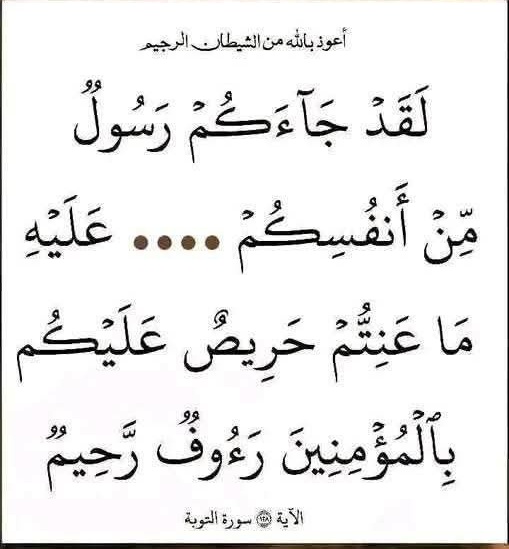 أعوذ بالله من الشيطان الرجيم
لَقَدْ جَآءَكُمْ رَسُولٌ
مِّنْ أَنفُسِكُمْ •••• عَلَيْهِ
مَا عَنِتُّمْ حَرِيصٌ عَلَيْكُم
بِٱلْمُؤْمِنِينَ رَءُوفٌ رَّحِيمٌ
الآية ١٢٨ سورة التوبة